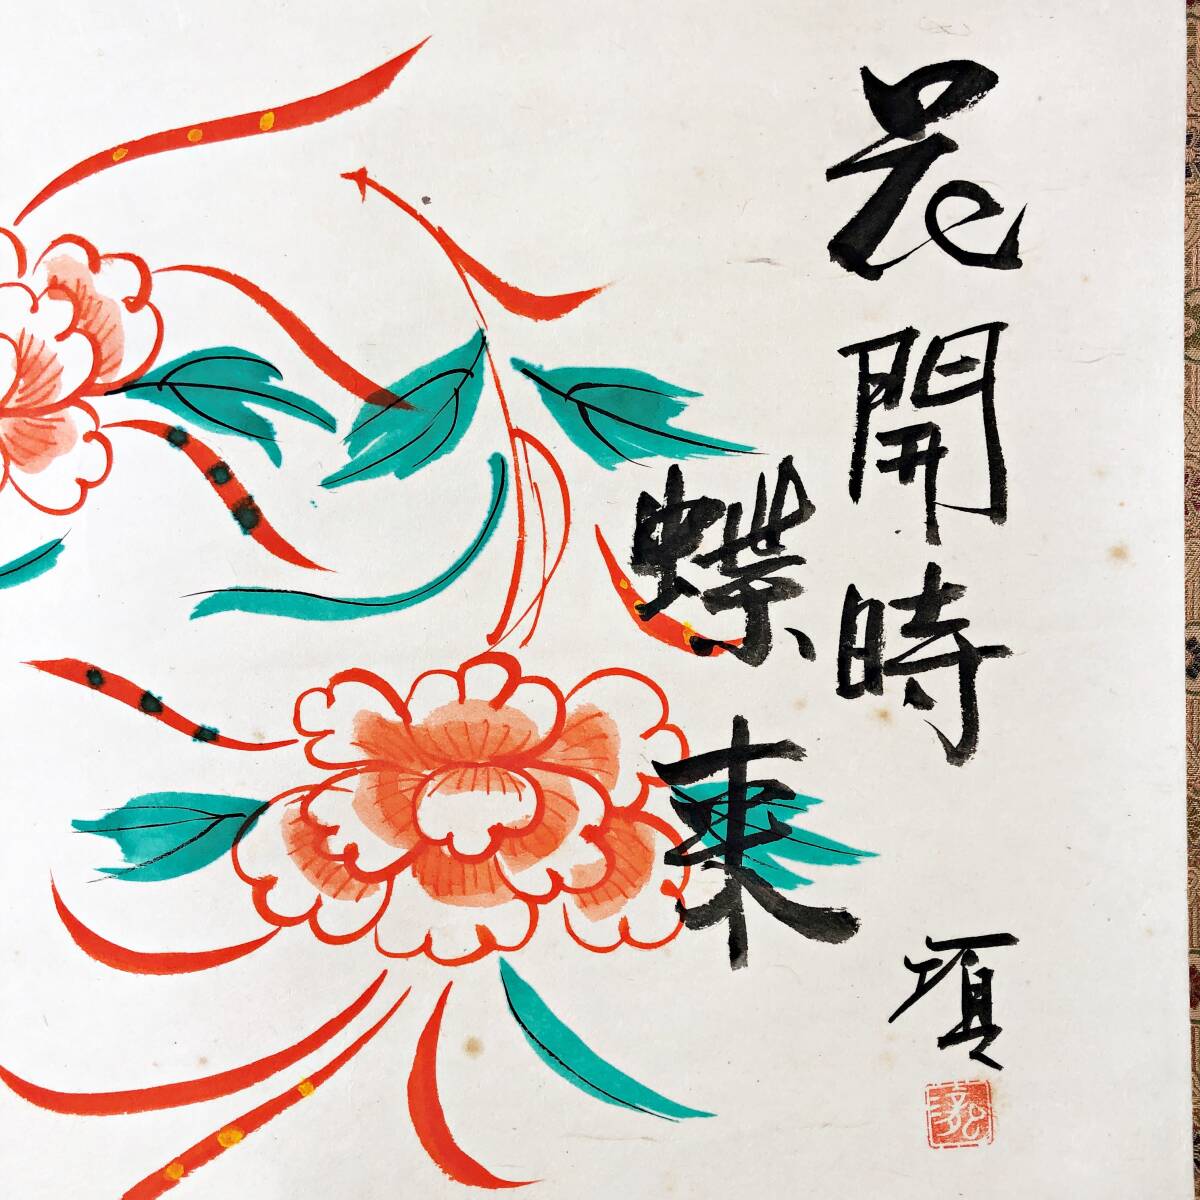 花開時
蝶来
項